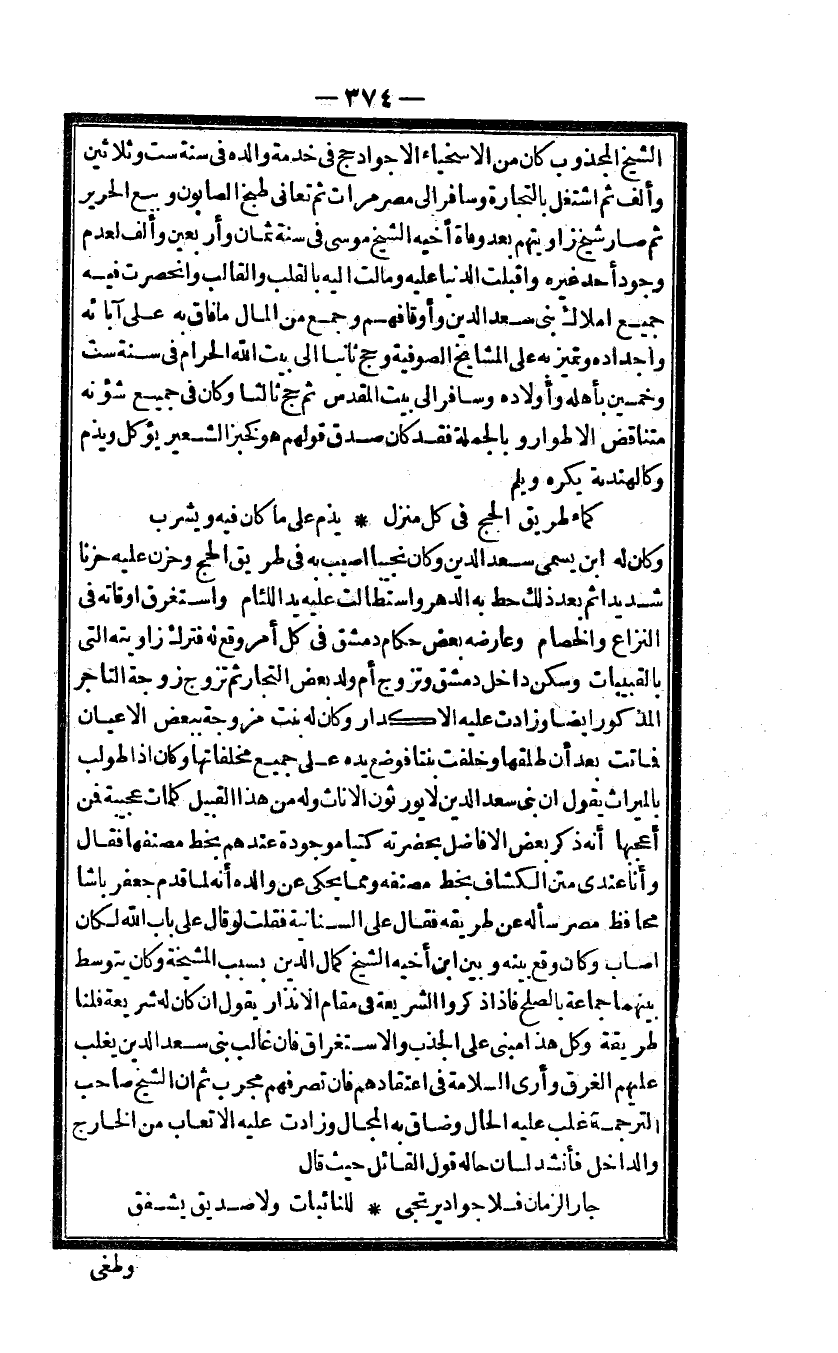 — ٣٧٤ —
الشيخ المجذوب كان من الاسخياء الاجواد حج فى خدمة والده فى سنة ست وثلاثين
وألف ثم اشتغل بالتجارة وسافر الى مصر مرات ثم تعانى طبخ الصابون وبيع الحرير
ثم صار شيخ زاويتهم بعد وفاة أخيه الشيخ موسى فى سنة ثمان وأربعين وألف لعدم
وجود أحد غيره واقبلت الدنيا عليه ومالت اليه بالقلب والقالب وانحصرت فيه
جميع املاك بنى سعد الدين وأوقافهم وجمع من المال مافاق به على آبائه
واجداده وتميز به على المشايخ الصوفية وحج ثانيا الى بيت الله الحرام فى سنة ست
وخمسين بأهله وأولاده وسافر الى بيت المقدس ثم حج ثالثا وكان فى جميع شؤنه
متناقض الاطوار وبالجملة فقد كان صدق قولهم هو كخبز الشعير يؤكل ويذم
وكالهندية يكره ويلم
كماء طريق الحج فى كل منزل * يذم على ما كان فيه ويشرب
وكان له ابن يسمى سعد الدين وكان نجيبا اصيب به فى طريق الحج وحزن عليه حزنا
شديدا ثم بعد ذلك حط به الدهر واستطالت عليه يد اللئام واستغرق اوقاته فى
النزاع والخصام وعارضه بعض حكام دمشق فى كل أمر وقع له فترك زاويته التى
بالقبيبات وسكن داخل دمشق وتزوج أم ولد بعض التجار ثم تزوج زوجة التاجر
المذكور ايضا وزادت عليه الاكدار وكان له بنت مزوجة ببعض الاعيان
فماتت بعد أن طلقها وخلفت بنتا فوضع يده على جميع مخلفاتها وكان اذا طولب
بالميراث يقول ان بنى سعد الدين لا يورثون الاناث وله من هذا القبيل كلمات عجيبة فن
أعجبها أنه ذكر بعض الافاضل بحضرته كتبا موجودة عندهم بخط مصنفها فقال
وأنا عندى متن الكشاف بخط مصنفه ومما يحكى عن والده أنه لما قدم جعفر باشا
محافظ مصر سأله عن طريقه فقال على السنانية فقلت لو قال على باب الله لكان
اصاب وكان وقع بينه وبين ابن أخيه الشيخ كمال الدين بسبب المشيخة وكان يتوسط
بينهما جماعة بالصلح فاذا ذكروا الشريعة فى مقام الانذار يقول ان كان له شريعة فلنا
طريقة وكل هذا مبنى على الجذب والاستغراق فان غالب بنى سعد الدين يغلب
عليهم الغرق وأرى السلامة فى اعتقادهم فان تصرفهم مجرب ثم ان الشيخ صاحب
الترجمة غلب عليه الحال وضاق به المجال وزادت عليه الاتعاب من الخارج
والداخل فأنشد لسان حاله قول القائل حيث قال
جار الزمان فلا جواد يرتجى * للنائبات ولا صديق يشفق
وطغى